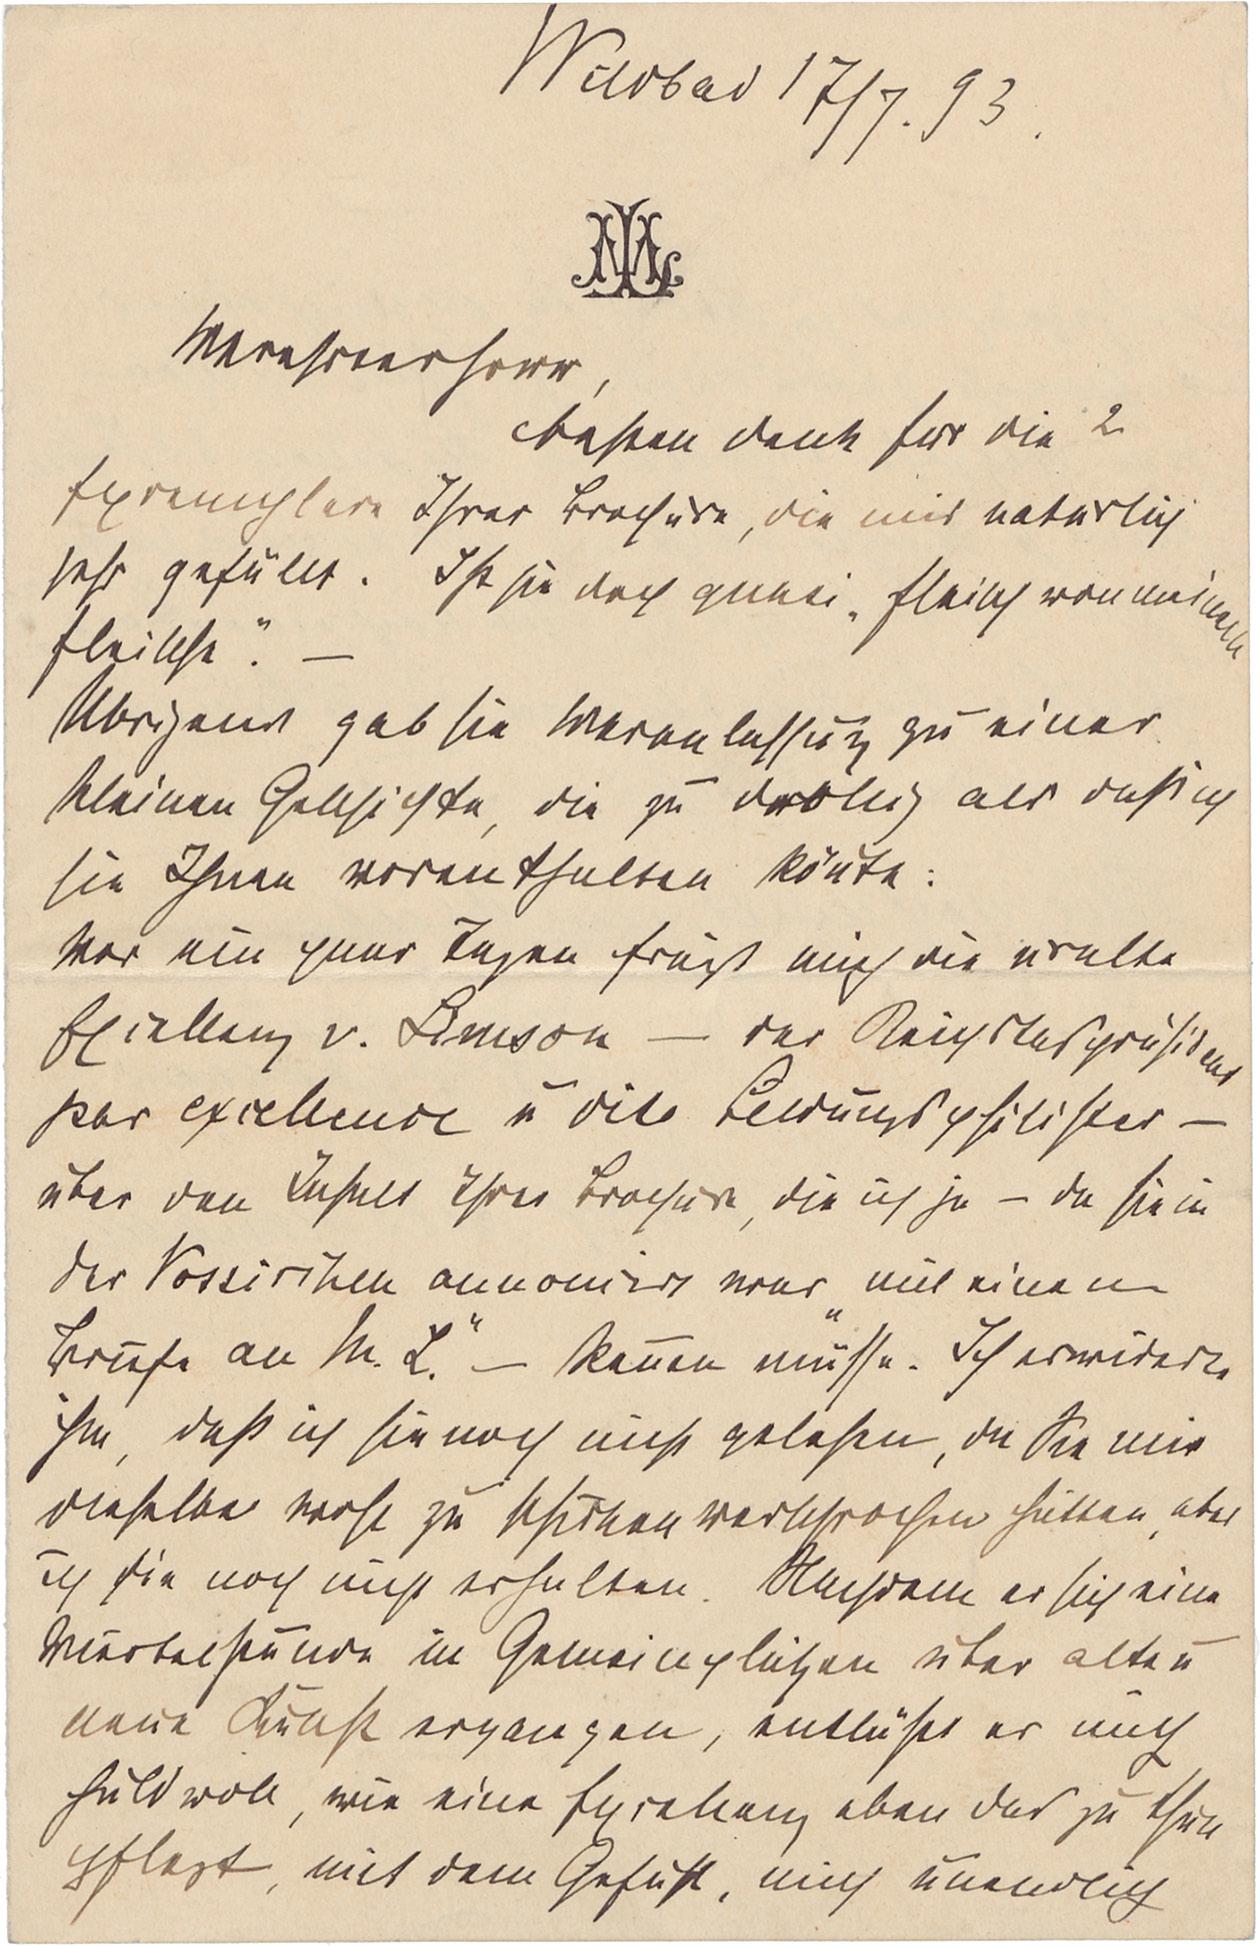 Wildbad 17/7. 93.
ML
Verehrter Herr,
Besten Dank für die 2
Exemplare Ihrer Brochure, die mir natürlich
sehr gefällt. Ist sie doch quasi „Fleisch von meinem
Fleische“. —
Übrigens gab sie Veranlassung zu einer
kleinen Geschichte, die zu drollig als daß ich
sie Ihnen vorenthalten könte:
Vor ein paar Tagen frägt mich die uralte
Excellenz v. Simson — der Reichstagspräsident
par excellence u dito Bildungsphilister —
über den Inhalt Ihrer Brochure, die ich ja — da sie in
der Vossischen annoncirt war „mit einem
Briefe an M. L.“ — kennen müsse. Ich erwiderte
ihm, daß ich sie noch nicht gelesen, da Sie mir
dieselbe wohl zu schicken versprochen hätten, aber
ich sie noch nicht erhalten. Nachdem er sich eine
Viertelstunde in Gemeinplätzen über alte u
neue Kunst ergangen, entläßt er mich
huldvoll, wie eine Excellenz eben das zu thun
pflegt, mit dem Gefühl, mich unendlich